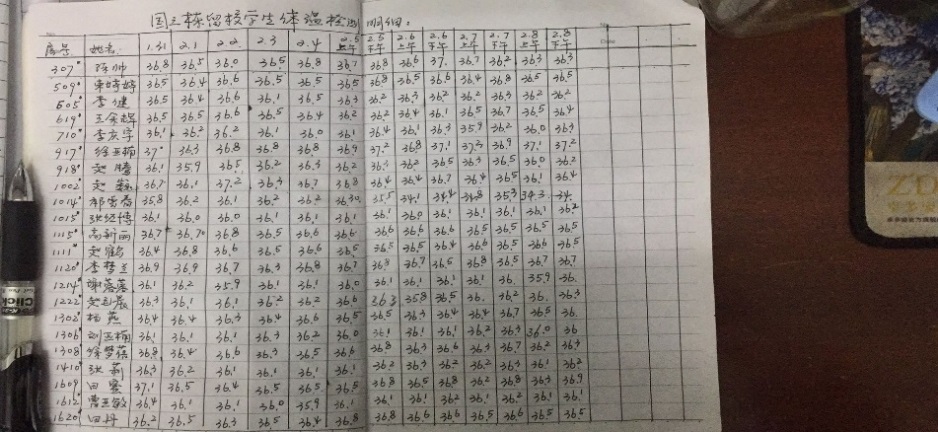 国三栋留校学生体温检测明细:
序号 姓名 1.31 2.1 2.2 2.3 2.4 2.5上午 2.5下午 2.6上午 2.6下午 2.7上午 2.7下午 2.8上午 2.8下午
307 陈帅 36.8 36.5 36.0 36.5 36.8 36.7 36.8 36.6 37. 36.7 36.2 36.3 36.3
509 36.5 36.4 36.6 36.5 36.5 36.5 36.8 36.5 36.6 36.4 36.8 36.5 36.5
605 李健 36.5 36.4 36.6 36.1 36.5 36.3 36.2 36.3 36.2 36.2 36.3 36.2 36.2
619 36.5 36.5 36.6 36.5 36.4 36.2 36.2 36.4 36.1 36.5 36.7 36.5 36.4
710 李庆宇 36.1 36.2 36.2 36.1 36.0 36.1 36.4 36.1 36.3 35.9 36.2 36.0 36.3
917 徐玉楠 37 36.3 36.8 36.8 36.8 36.9 37.2 36.8 37.1 37.3 36.9 37.1 37.2
918 赵 36.1 35.9 36.5 36.2 36.3 36.2 36.3 36.2 36.5 36.3 36.5 36.0 36.2
1002 赵 36.7 36.1 37.2 36.3 36.7 36.8 36.4 36.4 36.7 36.4 36.5 36.1 36.4
1014 35.8 36.2 36.1 36.2 36.2 36.30 35.5 34.1 34.4 34.8 35.3 34.3 34.
1015 张经博 36.1 36.0 36.0 36.1 36.1 36.1 36.1 36.0 36.1 36.1 36.1 36.1 36.2
1115 高新雨 36.7 36.70 36.8 36.5 36.6 36.6 36.6 36.6 36.6 36.5 36.5 36.5 36.5
1111 赵鹤 36.4 36.8 36.6 36.5 36.6 36.5 36.5 36.5 36.4 36.6 36.5 36.6 36.5
1120 李梦兰 36.9 36.9 36.7 36.3 36.8 36.7 36.8 36.7 36.5 36.8 36.5 36.7 36.7
1214 36.1 36.2 35.9 36.1 36.1 36.0 36.1 36.1 36.1 36.1 36. 35.9 36.
1222 36.3 36.1 36.1 36.2 36.2 36.6 36.3 35.8 36.5 36. 36.2 36. 36.3
1302 杨燕 36.4 36.4 36.3 36.4 36.6 36.5 36.5 36.3 36.4 36.4 36.7 36.5 36.
1306 刘玉楠 36.1 36.1 36.1 36.3 36.2 36.0 36.1 36.1 36.1 36.2 36.3 36.0 36
1308 徐梦蓓 36.8 36.4 36.6 36.3 36.5 36.6 36.8 36.3 36.6 36.3 36.7 36.2 36.3
1410 张莉 36.3 36.2 36.1 36.1 36.1 36.1 36.2 36.3 36.2 36.2 36.3 36.1 36.2
1609 田 37.1 36.5 36.4 36.5 36.5 36.5 36.8 36.5 36.8 36.2 36.8 36.3 36.9
1612 曹玉敏 36.4 36.1 36.1 36.0 35.9 36.1 36.1 36.1 36.2 36.1 36.2 36.1 36.1
1620 田丹 36.2 36.5 36.3 36.5 36.4 36.8 36.8 36.6 36.6 36.5 36.6 36.5 36.5